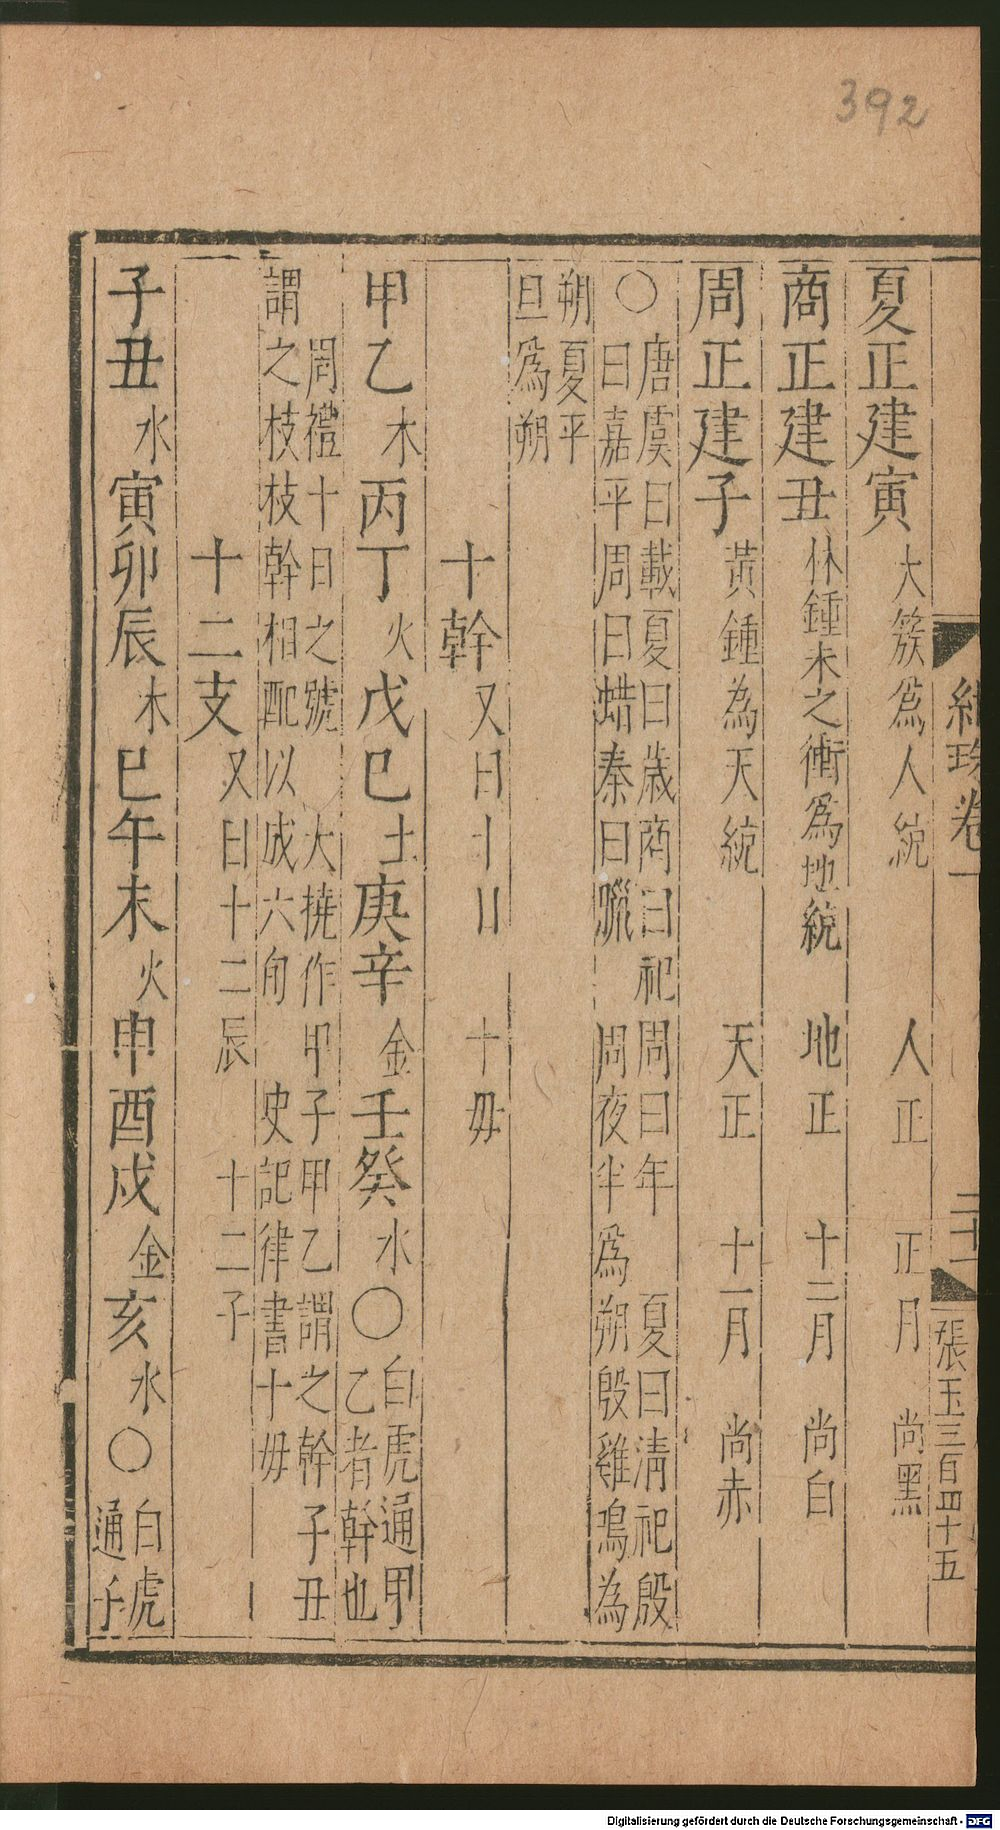 392
紺珠卷一 二十一 張玉三百四十五
夏正建寅 大簇爲人統 人正 正月 尚黑
商正建丑 林鍾未之衝爲地統 地正 十二月 尚白
周正建子 黃鍾為天統 天正 十一月 尚赤
○唐虞曰載夏曰歲商曰祀周曰年 夏曰清祀殷
曰嘉平周曰蜡秦曰臘 周夜半爲朔殷雞鳴為
朔夏平
旦爲朔
十幹 又曰十日 十毋
甲乙木丙丁火戊巳土庚辛金壬癸水○白虎通甲
乙者幹也
周禮十日之號 大撓作甲子甲乙謂之幹子丑
謂之枝枝幹相配以成六旬 史記律書十毋
十二支 又曰十二辰 十二子
子丑水寅卯辰木巳午未火申酉戌金亥水○白虎
通壬
Digitalisierung gefördert durch die Deutsche Forschungsgemeinschaft - DFG